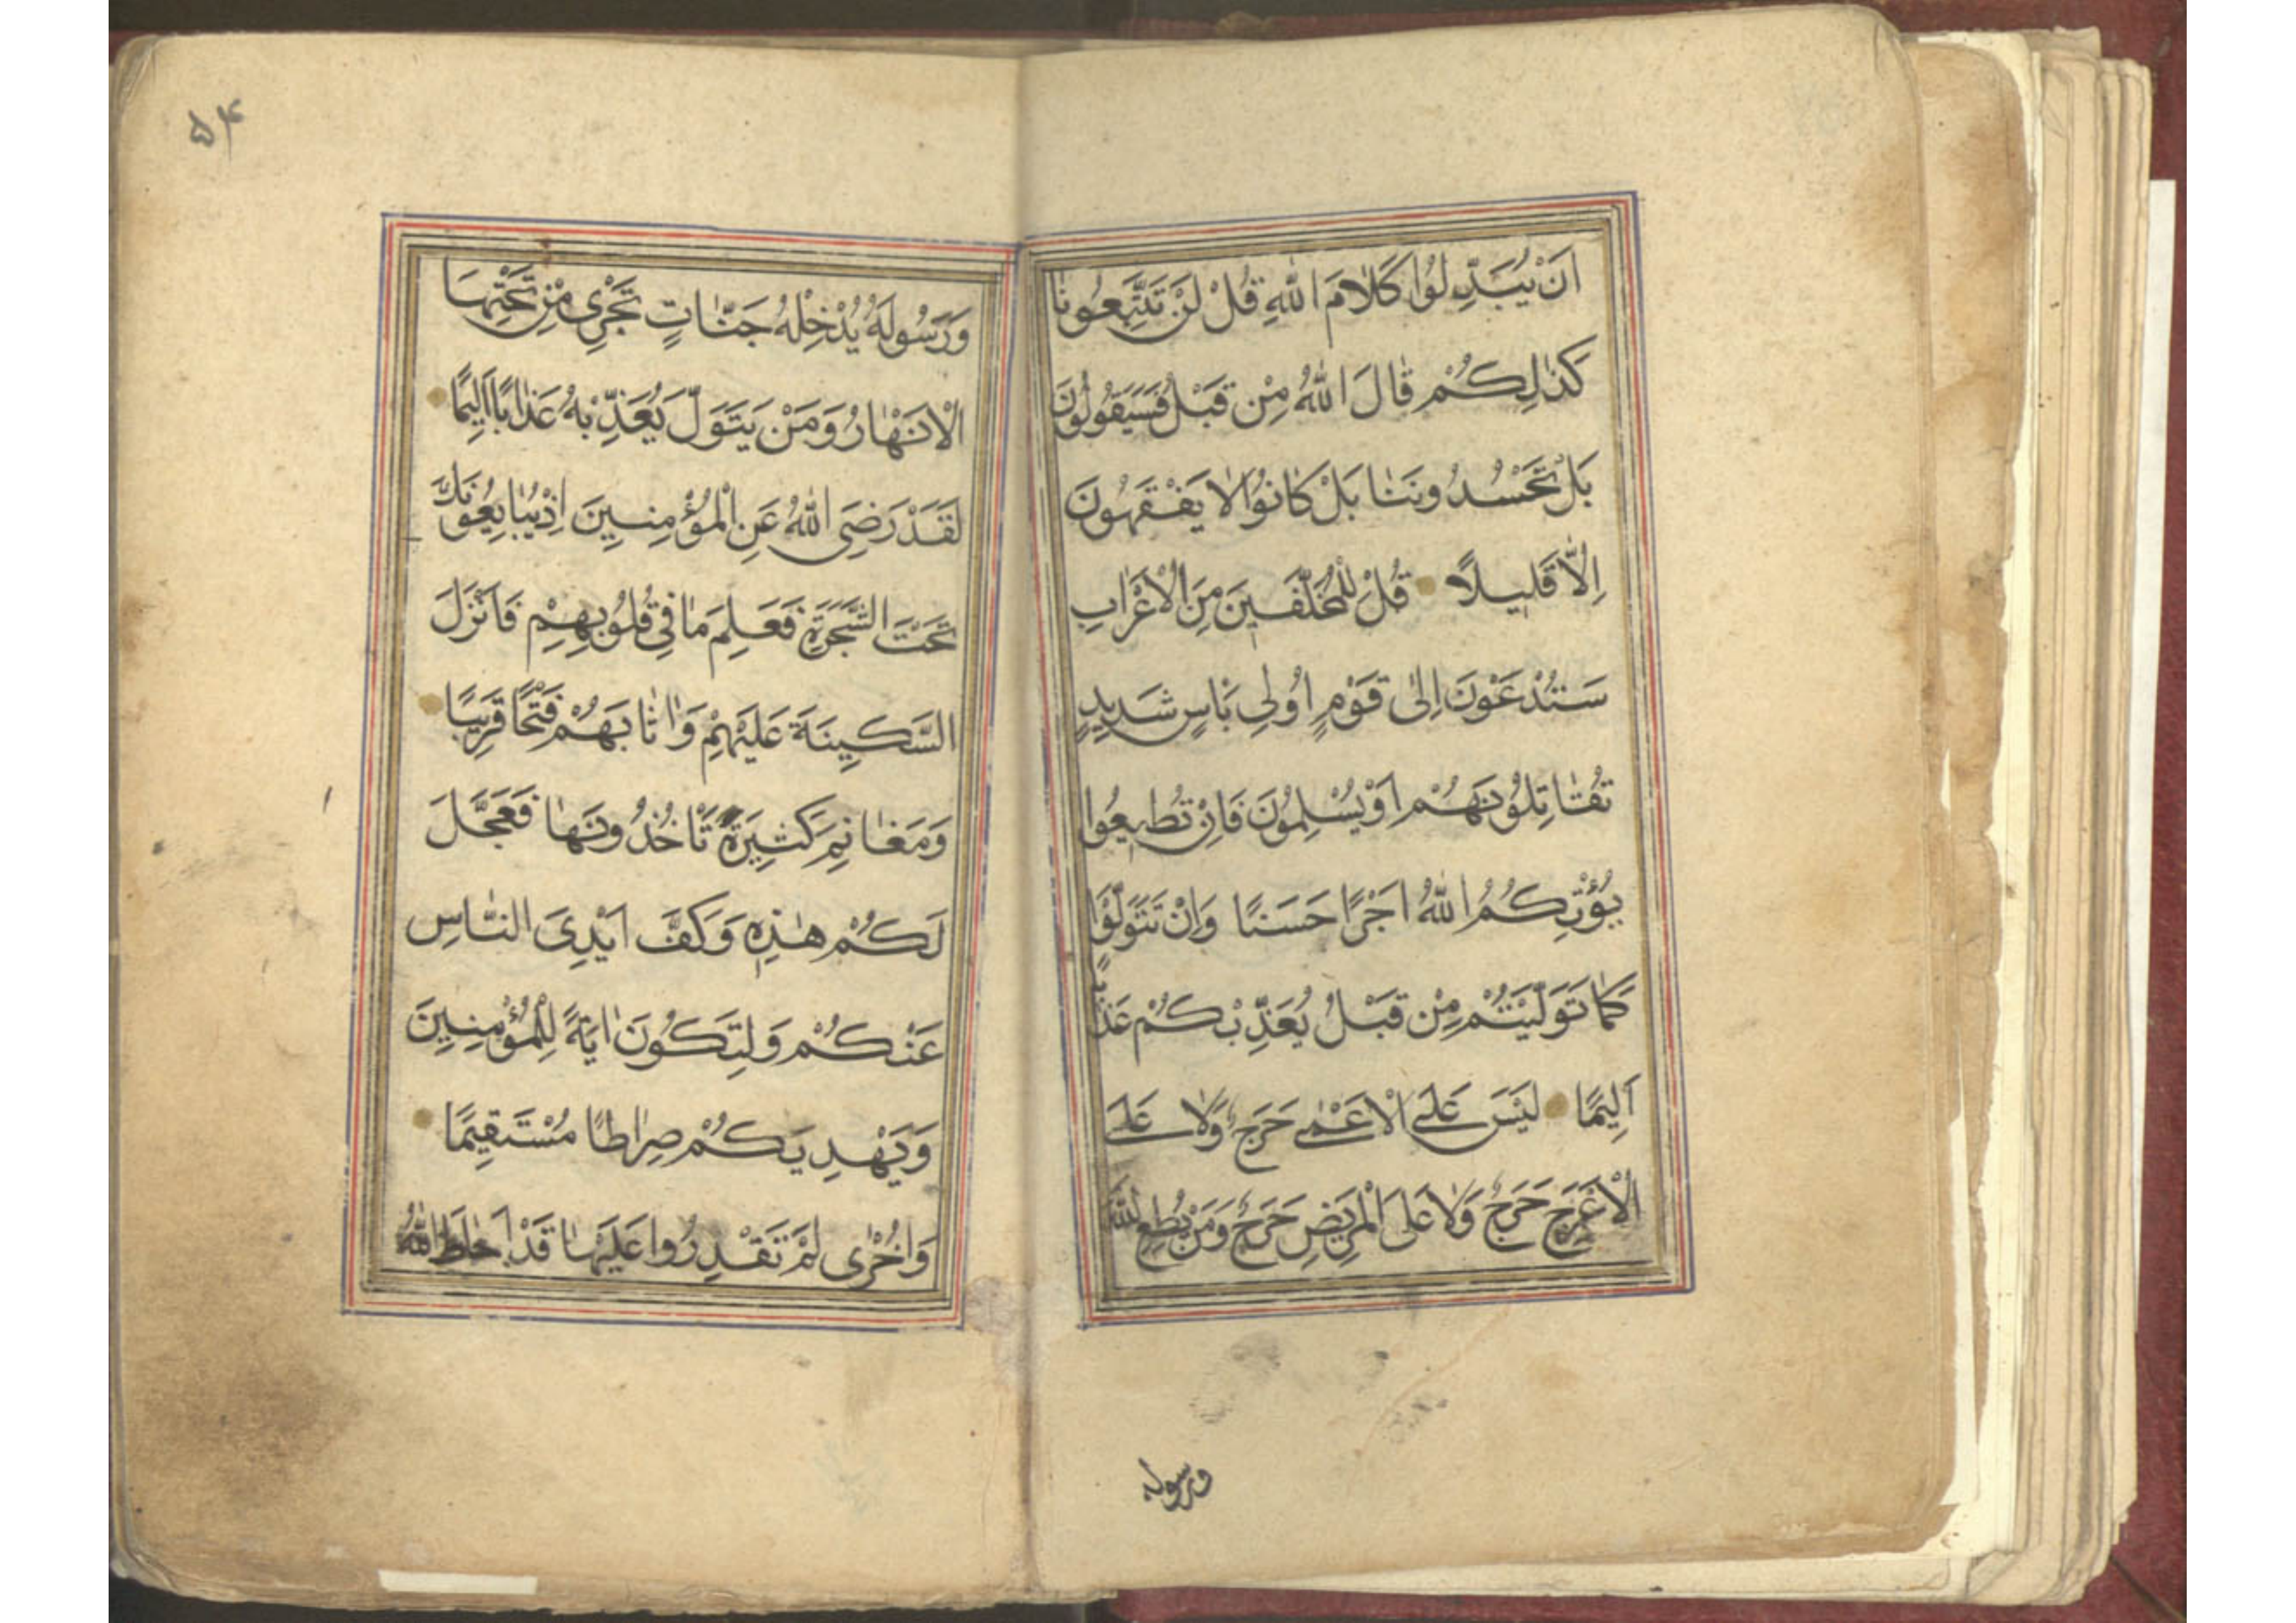 اَنْ يُبَدِّلُوا كَلَامَ اللّٰهِ قُلْ لَنْ تَتَّبِعُونَا
كَذٰلِكُمْ قَالَ اللّٰهُ مِنْ قَبْلُ فَسَيَقُولُونَ
بَلْ تَحْسُدُونَنَا بَلْ كَانُوا لَا يَفْقَهُونَ
اِلَّا قَلِيلًا قُلْ لِلْمُخَلَّفِينَ مِنَ الْاَعْرَابِ
سَتُدْعَوْنَ اِلٰى قَوْمٍ اُولِى بَاْسٍ شَدِيدٍ
تُقَاتِلُونَهُمْ اَوْ يُسْلِمُونَ فَاِنْ تُطِيعُوا
يُؤْتِكُمُ اللّٰهُ اَجْرًا حَسَنًا وَاِنْ تَتَوَلَّوْا
كَمَا تَوَلَّيْتُمْ مِنْ قَبْلُ يُعَذِّبْكُمْ عَذَابًا
اَلِيمًا لَيْسَ عَلَى الْاَعْمٰى حَرَجٌ وَلَا عَلَى
الْاَعْرَجِ حَرَجٌ وَلَا عَلَى الْمَرِيضِ حَرَجٌ وَمَنْ يُطِعِ اللّٰهَ
ورسوله
۵۴
وَرَسُولَهُ يُدْخِلْهُ جَنَّاتٍ تَجْرِى مِنْ تَحْتِهَا
الْاَنْهَارُ وَمَنْ يَتَوَلَّ يُعَذِّبْهُ عَذَابًا اَلِيمًا
لَقَدْ رَضِىَ اللّٰهُ عَنِ الْمُؤْمِنِينَ اِذْ يُبَايِعُونَكَ
تَحْتَ الشَّجَرَةِ فَعَلِمَ مَا فِى قُلُوبِهِمْ فَاَنْزَلَ
السَّكِينَةَ عَلَيْهِمْ وَاَثَابَهُمْ فَتْحًا قَرِيبًا
وَمَغَانِمَ كَثِيرَةً تَاْخُذُونَهَا فَعَجَّلَ
لَكُمْ هٰذِهِ وَكَفَّ اَيْدِىَ النَّاسِ
عَنْكُمْ وَلِتَكُونَ اٰيَةً لِلْمُؤْمِنِينَ
وَيَهْدِيَكُمْ صِرَاطًا مُسْتَقِيمًا
وَاُخْرٰى لَمْ تَقْدِرُوا عَلَيْهَا قَدْ اَحَاطَ اللّٰهُ